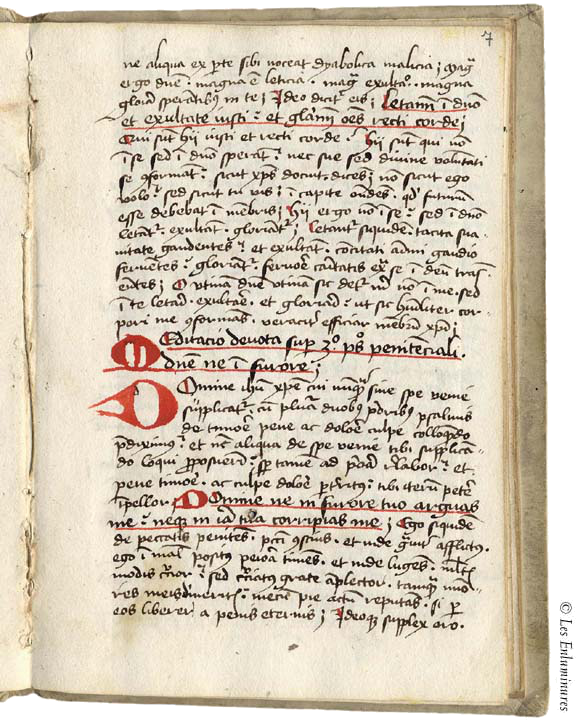 7
ne aliqua ex pte sibi noceat dyabolica malicia ; mag
ergo dne · magna e leticia · mag exultao · magna
gloria speratibus in te ; Ideo dicit eis ; Letami i dno
et exultate iusti : et glami oes recti corde ;
Qui sunt hii iusti et recti corde · hii sunt qui no
i se sed i dno sperat : nec sue sed divine voluntati
se 9format : sicut xps docuit dices ; no sicut ego
volo : sed sicut tu vis ; i capite ondes · qd futurum
esse debebat i membris ; hii ergo no i se : sed i dno
letat · exultat · gloriat ; letant siquide tacita sua
vitate gaudentes : et exultat · cocitati animi gaudio
ferventes : gloriat · fervore caritatis ex se i deu tras
entes ; O utina dne utina sic no i me · sed
i te leta · exulta · et gloria : ut sic humiliter cor
pori me 9formas · veraciter efficiar mebru xpi ;
Meditacio devota sup 3o ps penitenciali ·
dne ne i furore ;
Domine ihu xpe cui nuq sine spe venie
supplicat · cu pluia duobus pribus psalmis
de timore pene ac dolore culpe colloqdo
pduximus : et no aliqua de spe venie tibi supplica
do loqui pposueri : tame ad labor : et
pene timore · ac culpe dolore tibi iteru petere
ipellor · Domine ne in furore tuo arguas
me : neq in ira tua corripias me ; Ego siquide
de peccatis penites · pcti 9scius · et inde gravit afflictus ·
ego i malis positus peiora times · et inde luges · multis
modis : sed grate aplector · tamq
res meis : pie actu reputas · si p
eos liberer a penis eternis ; Ideoq supplex oro ·
© Les Enluminures